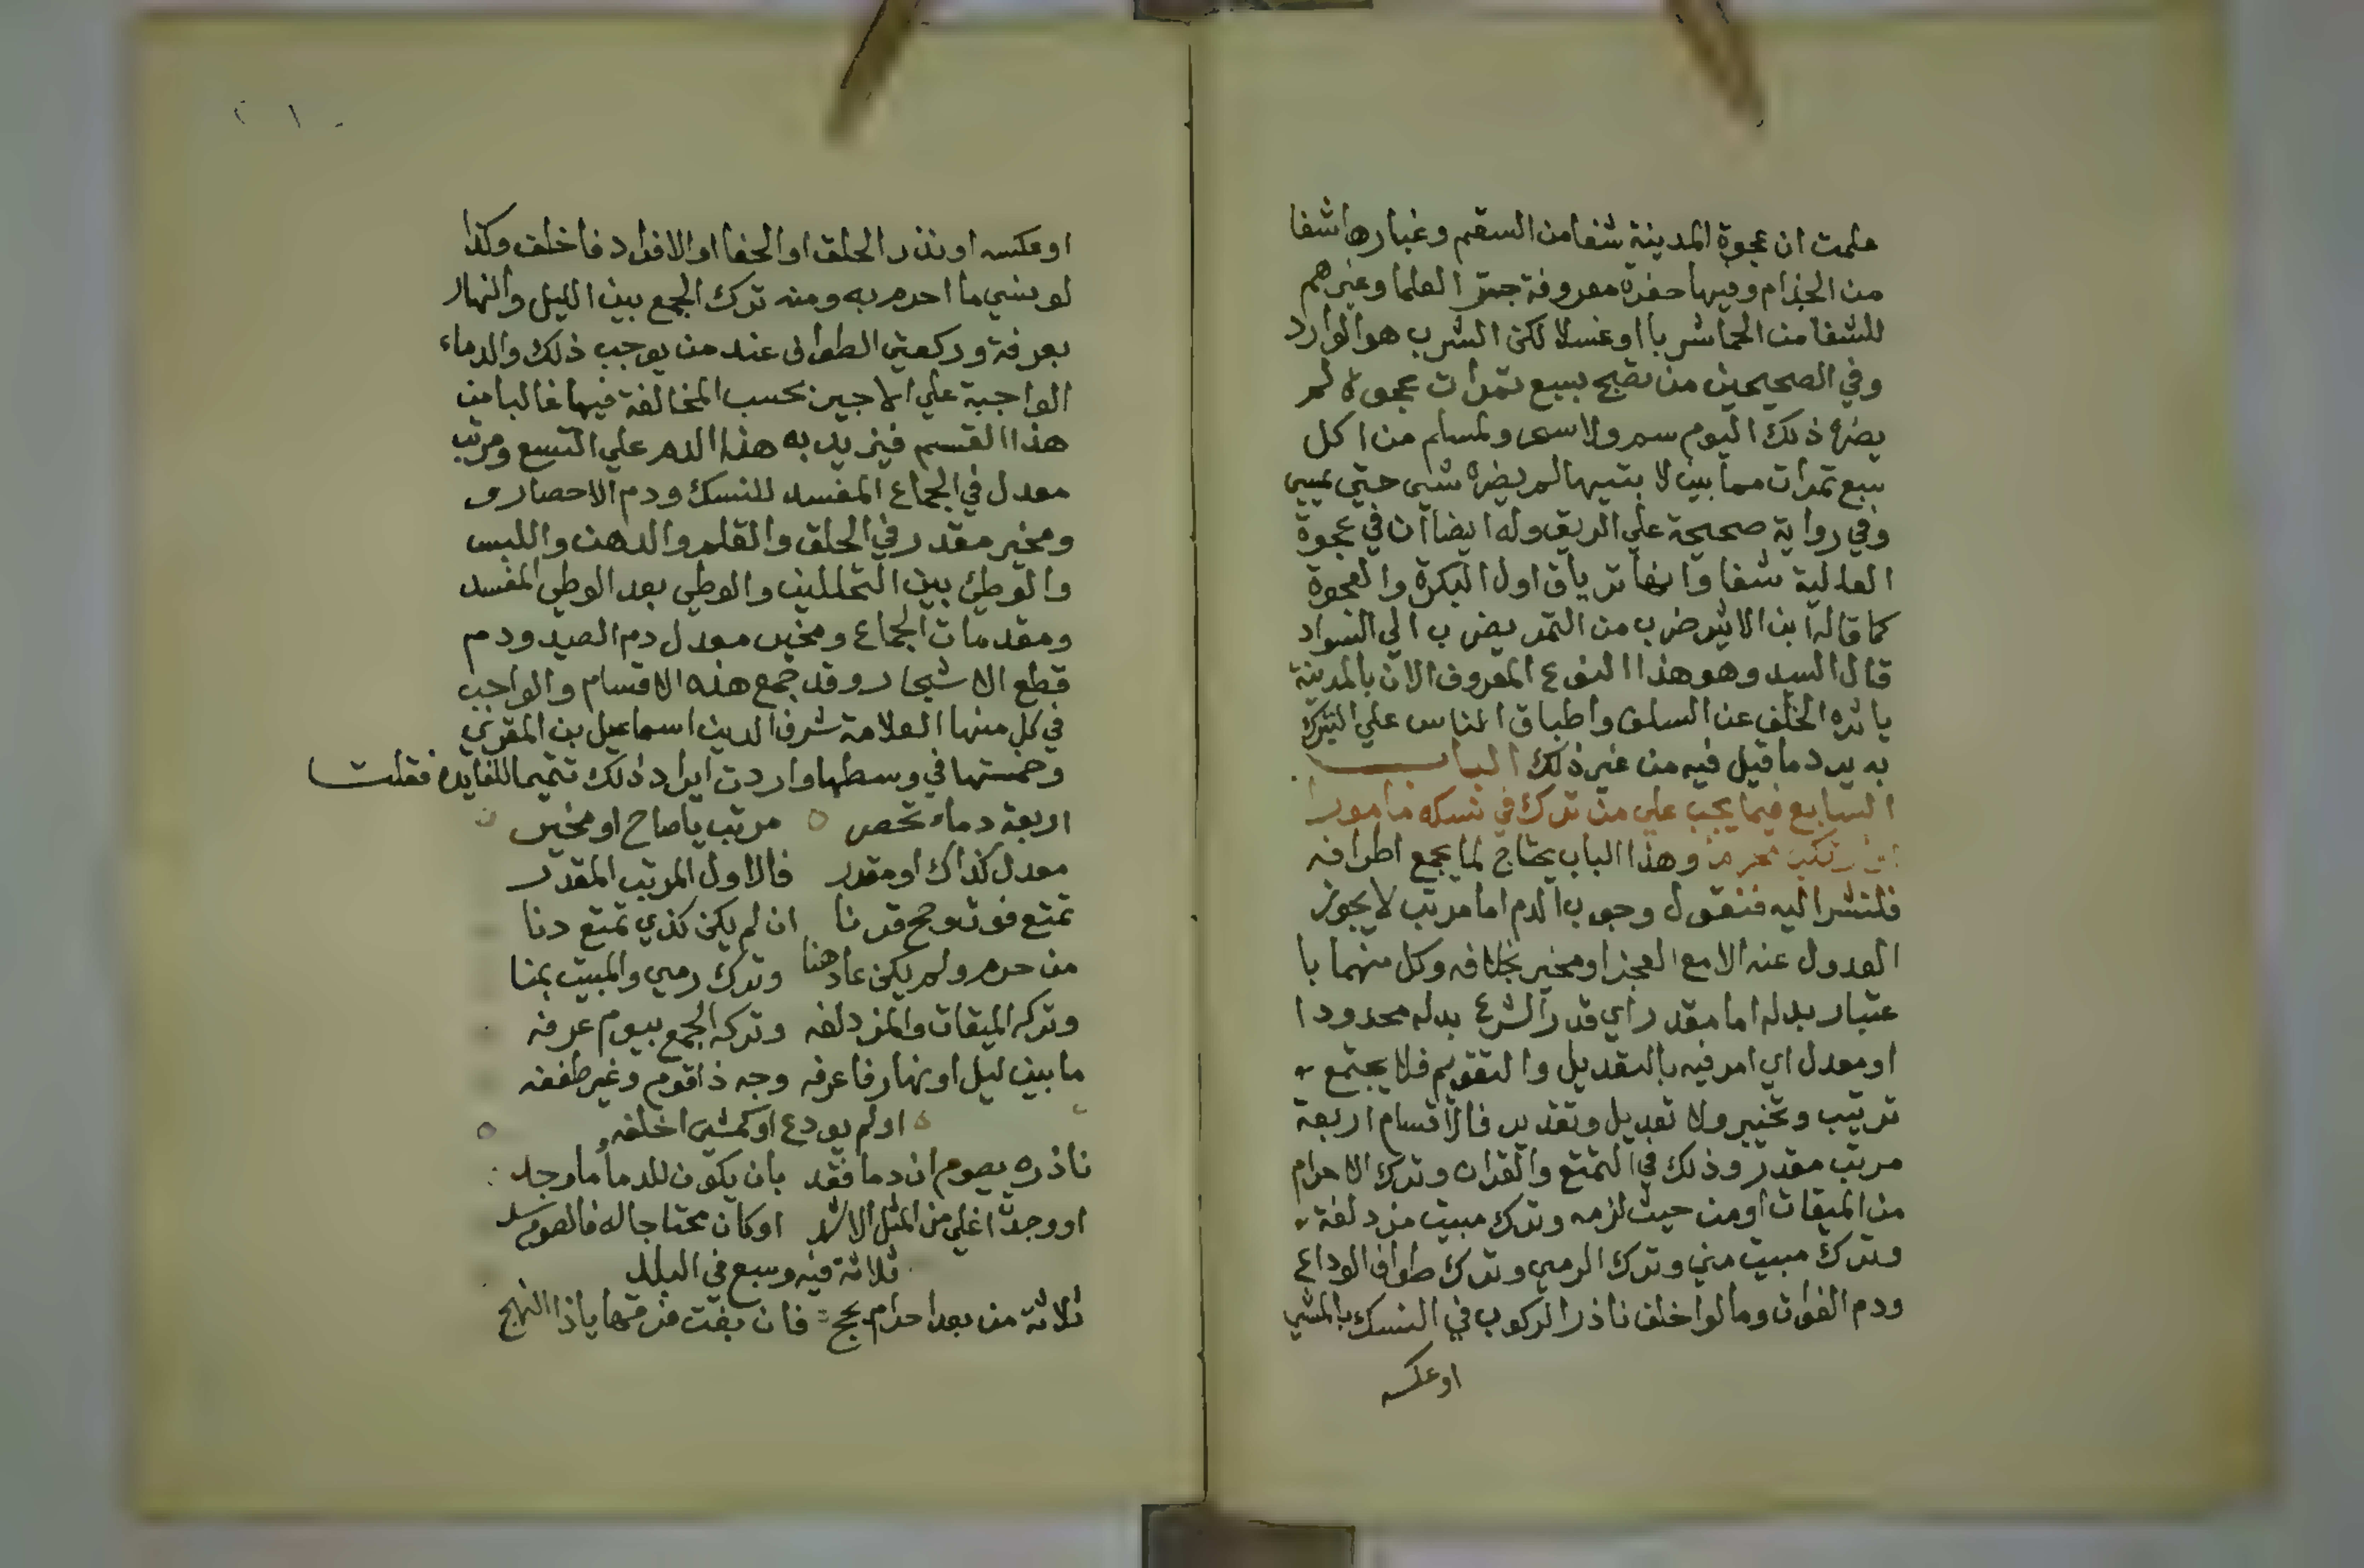 علمت ان عجوة المدينة شفا من السقم وغبارها شفا
من الجذام وفيها حفرة معروفة جرّب العلما وغيرهم
للشفا من الحما شربا او غسلا لكن الشرب هو الوارد
وفي الصحيحين من تصبح بسبع تمرات عجوة لم
يضره ذلك اليوم سم ولا سحر ولمسلم من اكل
سبع تمرات مما بين لابتيها لم يضره شي حتي يمسي
وفي رواية صحيحة علي الريق وله ايضا ان في عجوة
العالية شفا وانها ترياق اول البكرة والعجوة
كما قاله ابن الاثير ضرب من التمر يضرب الي السواد
قال السيد وهو هذا النوع المعروف الان بالمدينة
ياثره الخلف عن السلف واطباق الناس علي التبرك
به يرد ما قيل فيه من غير ذلك الباب
السابع فيما يجب علي من ترك في نسكه مامورا
او ارتكب محرما وهذا الباب يحتاج لما يجمع اطرافه
فلنشر اليه فنقول وجوب الدم اما مرتب لا يجوز
العدول عنه الا مع العجز او مخير بخلافه وكل منهما با
عتبار بدله اما مقدر اي قدر الشرع بدله محدودا
او معدل اي امر فيه بالتعديل والتقويم فلا يجتمع
ترتيب وتخيير ولا تعديل وتقدير فالاقسام اربعة
مرتب مقدر وذلك في التمتع والقران وترك الاحرام
من الميقات او من حيث لزمه وترك مبيت مزدلفة
وترك مبيت مني وترك الرمي وترك طواف الوداع
ودم الفوات وما لو اخلف ناذر الركوب في النسك بالمشي
او عكسه
٢١٠
او عكسه او نذر الحلق او الحفا او الافراد فاخلف وكذا
لو نسي ما احرم به ومنه ترك الجمع بين الليل والنهار
بعرفة وركعتي الطواف عند من يوجب ذلك والدماء
الواجبة علي الاجير بحسب المخالفة فيها غالبا من
هذا القسم فيزيد به هذا الدم علي التسع ومرتب
معدل في الجماع المفسد للنسك ودم الاحصار و
ومخير مقدر في الحلق والقلم والدهن واللبس
والوطئ بين التحللين والوطي بعد الوطي المفسد
ومقدمات الجماع ومخير معدل دم الصيد ودم
قطع الاشجار وقد جمع هذه الاقسام والواجب
في كل منها العلامة شرف الدين اسماعيل بن المقري
وخمستها في وسطها واردت ايراد ذلك تتميما للفايدة فقلت
اربعة دماء تحصر مرتب ياصاح او مخير
معدل كذاك او مقدر فالاول المرتب المقدر
تمتع فوت وحج قرنا ان لم يكن كذي تمتع دنا
من حرم ولم يكن عاد هنا وترك رمي والمبيت بمنا
وتركه الميقات والمزدلفه وتركه الجمع بيوم عرفه
ما بين ليل او نهار فاعرفه وجه ذا قوم وغير طففه
او لم يودع او كمشي اخلفه
ناذره يصوم ان دما فقد بان يكون للدما ما وجد
او وجد اغلي من المثل الاشد او كان محتاجا له فالصوم سد
ثلاثة فيه وسبع في البلد
ثلاثة من بعد احرام بحج فان بفت فرقها ياذا النهج